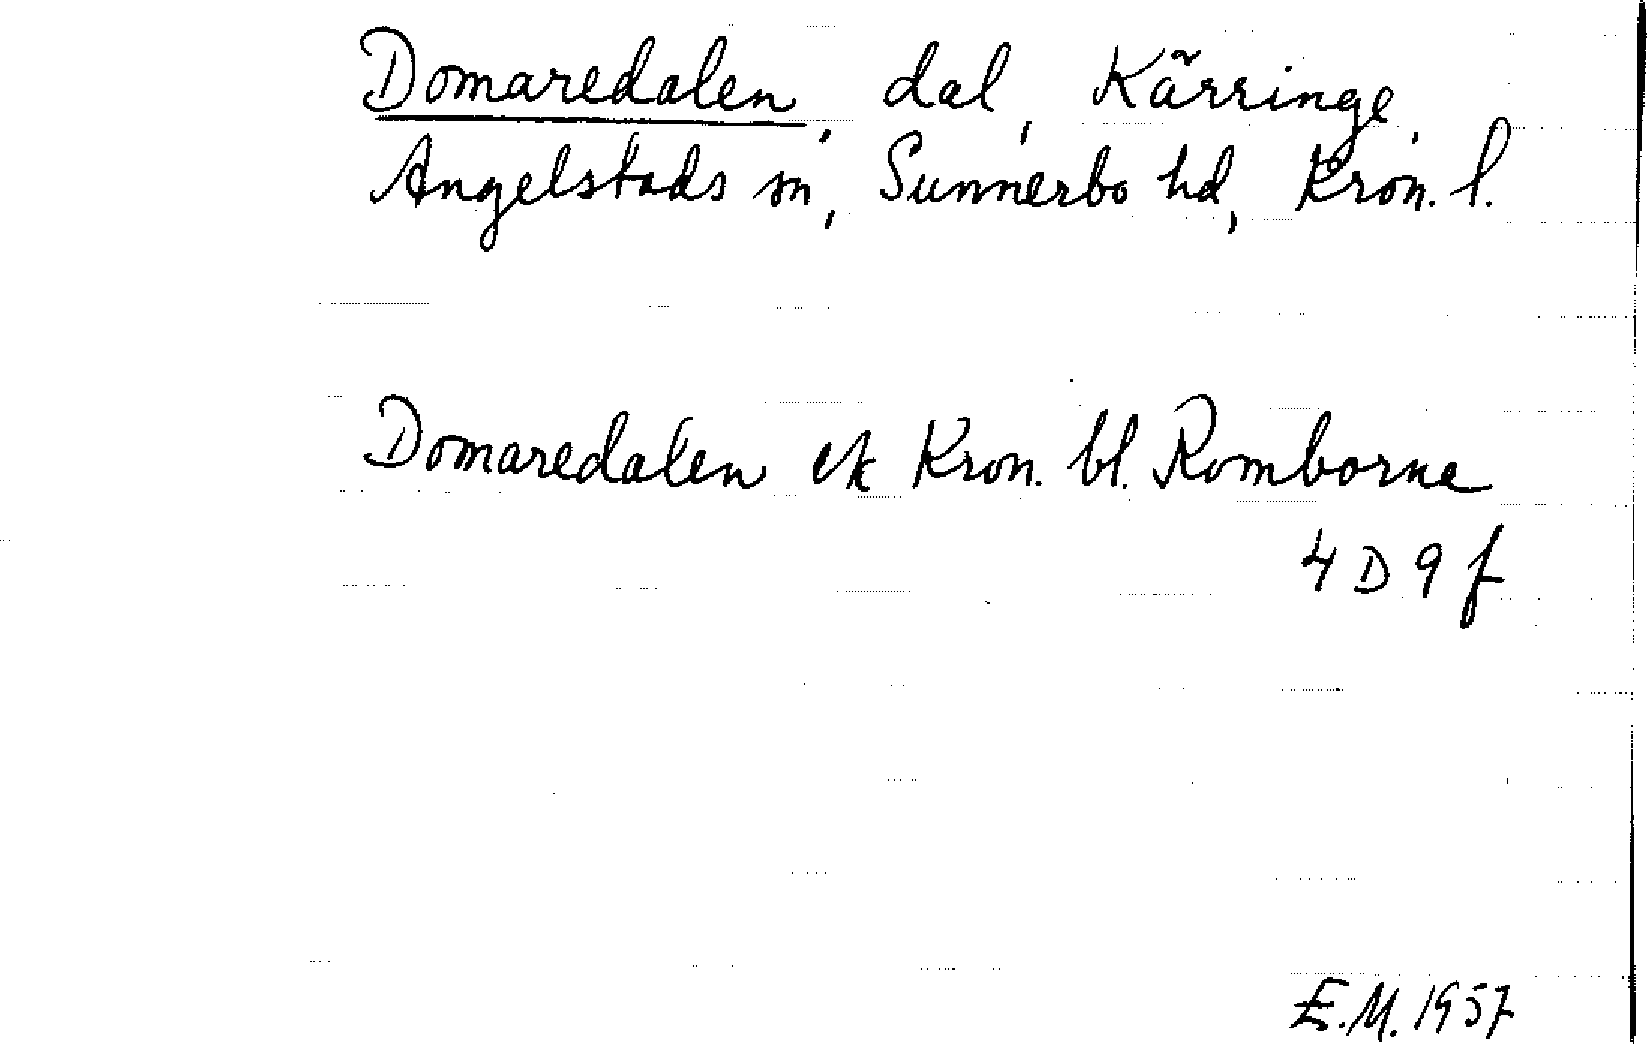 Domaredalen, dal, Kärringe,
Angelstads sn, Sunnerbo hd, Kron. l.
Domaredalen ek Kron. bl. Romborna
4 D 9 f
E.M. 1957